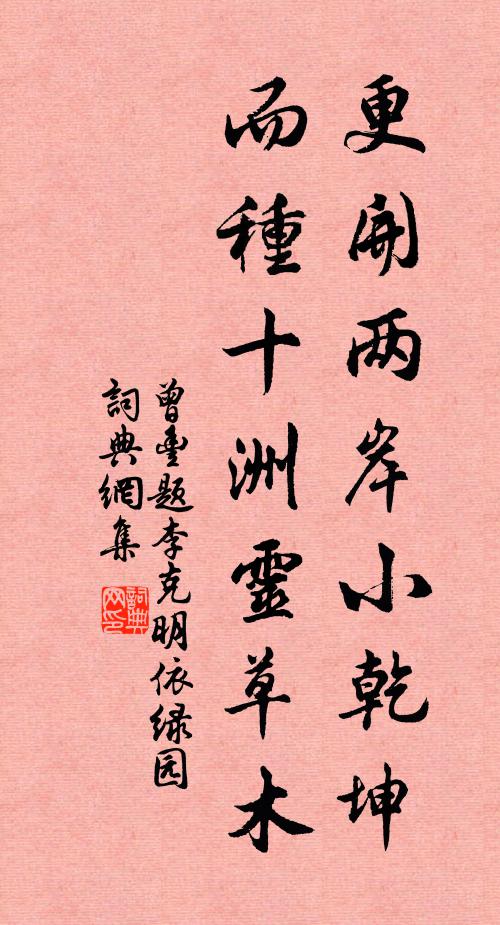 更開两岸小乾坤
而種十洲靈草木
曾豐题李克明依绿园
詞典網集
詞典网印